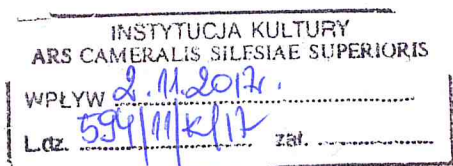 INSTYTUCJA KULTURY
ARS CAMERALIS SILESIAE SUPERIORIS
WPŁYW 2.11.2017r.
L.dz. 594/11/K/17 zał. ....................